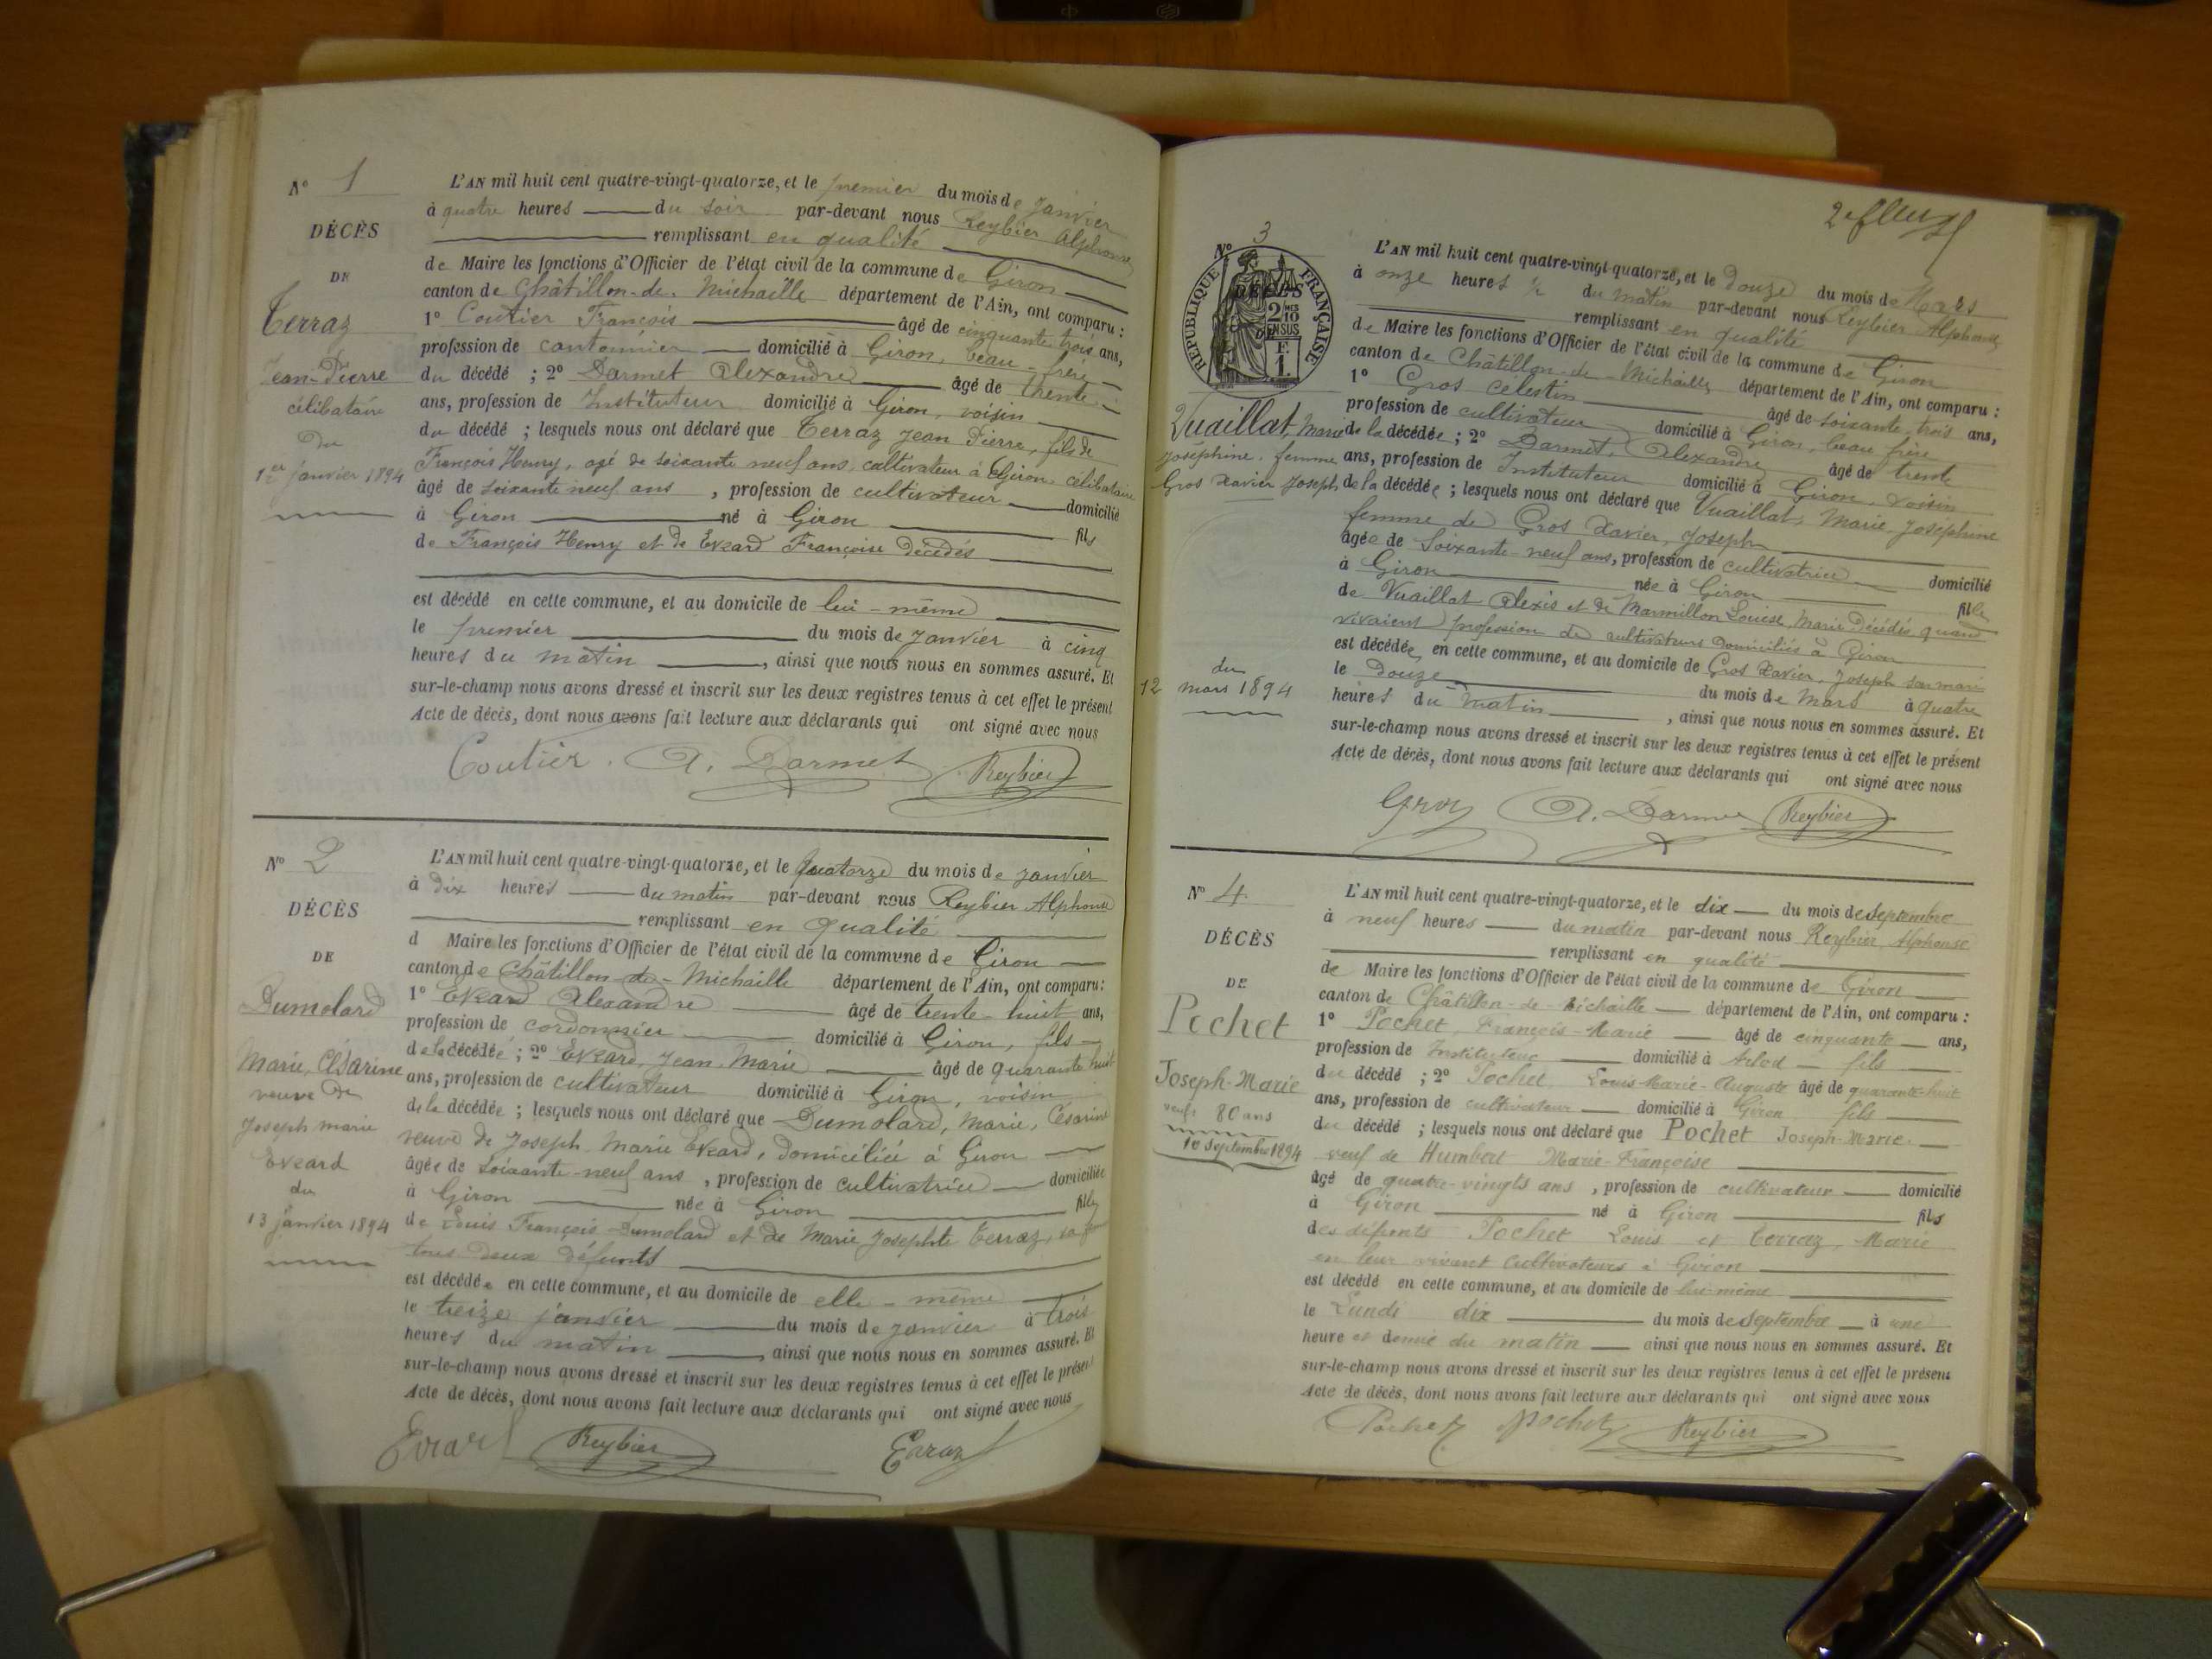 N° 1
DÉCÈS
DE
Terraz
Jean-Pierre
célibataire
du
1er Janvier 1894
L'AN mil huit cent quatre-vingt-quatorze, et le premier du mois de Janvier
à quatre heures du soir par-devant nous Reybier Alphonse
remplissant en qualité
de Maire les fonctions d'Officier de l'état civil de la commune de Giron
canton de Châtillon-de-Michaille département de l'Ain, ont comparu :
1° Coutier François âgé de cinquante trois ans,
profession de cantonnier domicilié à Giron, beau-frère
du décédé ; 2° Darmet Alexandre âgé de trente
ans, profession de Instituteur domicilié à Giron, voisin
du décédé ; lesquels nous ont déclaré que Terraz Jean Pierre, fils de
François Henry, agé de soixante neuf ans, cultivateur à Giron célibataire
âgé de soixante neuf ans , profession de cultivateur domicilié
à Giron né à Giron fils
de François Henry et de Evrard Françoise décédés
est décédé en cette commune, et au domicile de lui-même
le premier du mois de Janvier à cinq
heures du matin , ainsi que nous nous en sommes assuré. Et
sur-le-champ nous avons dressé et inscrit sur les deux registres tenus à cet effet le présent
Acte de décès, dont nous avons fait lecture aux déclarants qui ont signé avec nous
Coutier. A. Darmet Reybier
N° 2
DÉCÈS
DE
Dumolard
Marie, Césarine
veuve de
Joseph marie
Evrard
du
13 Janvier 1894
L'AN mil huit cent quatre-vingt-quatorze, et le Quatorze du mois de Janvier
à dix heures du matin par-devant nous Reybier Alphonse
remplissant en qualité
d Maire les fonctions d'Officier de l'état civil de la commune de Giron
canton de Châtillon-de-Michaille département de l'Ain, ont comparu :
1° Evrard Alexandre âgé de trente-huit ans,
profession de cordonnier domicilié à Giron, fils
de la décédée ; 2° Evrard, Jean, Marie âgé de quarante huit
ans, profession de cultivateur domicilié à Giron, voisin
de la décédée ; lesquels nous ont déclaré que Dumolard, Marie, Césarine
veuve de Joseph Marie Evrard, domiciliée à Giron
âgée de soixante-neuf ans , profession de cultivatrice domiciliée
à Giron née à Giron fille
de Louis François Dumolard et de Marie Josephte Terraz, sa
tous deux défunts
est décédée en cette commune, et au domicile de elle-même
le treize janvier du mois de Janvier à trois
heures du matin , ainsi que nous nous en sommes assuré. Et
sur-le-champ nous avons dressé et inscrit sur les deux registres tenus à cet effet le présent
Acte de décès, dont nous avons fait lecture aux déclarants qui ont signé avec nous
Evrard Reybier Evrard
N° 3
DÉCÈS
RÉPUBLIQUE FRANÇAISE
2/10 EN SUS
F. 1.
Vuaillat, Marie
Joséphine, femme
Gros Xavier Joseph
du
12 mars 1894
L'AN mil huit cent quatre-vingt-quatorze, et le Douze du mois de Mars
à onze heures ½ du matin par-devant nous Reybier Alphonse
remplissant en qualité
de Maire les fonctions d'Officier de l'état civil de la commune de Giron
canton de Châtillon-de-Michaille département de l'Ain, ont comparu :
1° Gros Célestin âgé de soixante-trois ans,
profession de cultivateur domicilié à Giron, beau frère
de la décédée ; 2° Darmet, Alexandre âgé de trente
ans, profession de Instituteur domicilié à Giron, voisin
de la décédée ; lesquels nous ont déclaré que Vuaillat, Marie, Joséphine
femme de Gros Xavier, Joseph
âgée de Soixante-neuf ans, profession de cultivatrice domicilié
à Giron née à Giron fille
de Vuaillat Alexis et de Marmillon Louise, Marie Décédés, quand
vivaient profession de cultivateurs domiciliés à Giron
est décédée, en cette commune, et au domicile de Gros Xavier, Joseph son mari
le Douze du mois de Mars à quatre
heures du matin , ainsi que nous nous en sommes assuré. Et
sur-le-champ nous avons dressé et inscrit sur les deux registres tenus à cet effet le présent
Acte de décès, dont nous avons fait lecture aux déclarants qui ont signé avec nous
Gros A. Darmet Reybier
N° 4
DÉCÈS
DE
Pochet
Joseph-Marie
veuf 80 ans
10 Septembre 1894
L'AN mil huit cent quatre-vingt-quatorze, et le dix du mois de Septembre
à neuf heures du matin par-devant nous Reybier Alphonse
remplissant en qualité
de Maire les fonctions d'Officier de l'état civil de la commune de Giron
canton de Châtillon-de-Michaille département de l'Ain, ont comparu :
1° Pochet François-Marie âgé de cinquante ans,
profession de Instituteur domicilié à Arlod fils
du décédé ; 2° Pochet Louis-Marie-Auguste âgé de quarante-huit
ans, profession de cultivateur domicilié à Giron fils
du décédé ; lesquels nous ont déclaré que Pochet Joseph-Marie
veuf de Humbert Marie-Françoise
âgé de quatre-vingts ans , profession de cultivateur domicilié
à Giron né à Giron fils
des défunts Pochet Louis et Terraz Marie
en leur vivant cultivateurs à Giron
est décédé en cette commune, et au domicile de lui-même
le Lundi dix du mois de Septembre à une
heure et demie du matin ainsi que nous nous en sommes assuré. Et
sur-le-champ nous avons dressé et inscrit sur les deux registres tenus à cet effet le présent
Acte de décès, dont nous avons fait lecture aux déclarants qui ont signé avec nous
Pochet Pochet Reybier